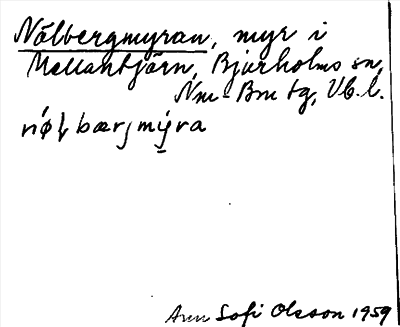 Nålbergmyran, myr i
Mellantjärn, Bjurholms sn,
Nm-Bm tg, Vb. l.
Ann Sofi Olsson 1959